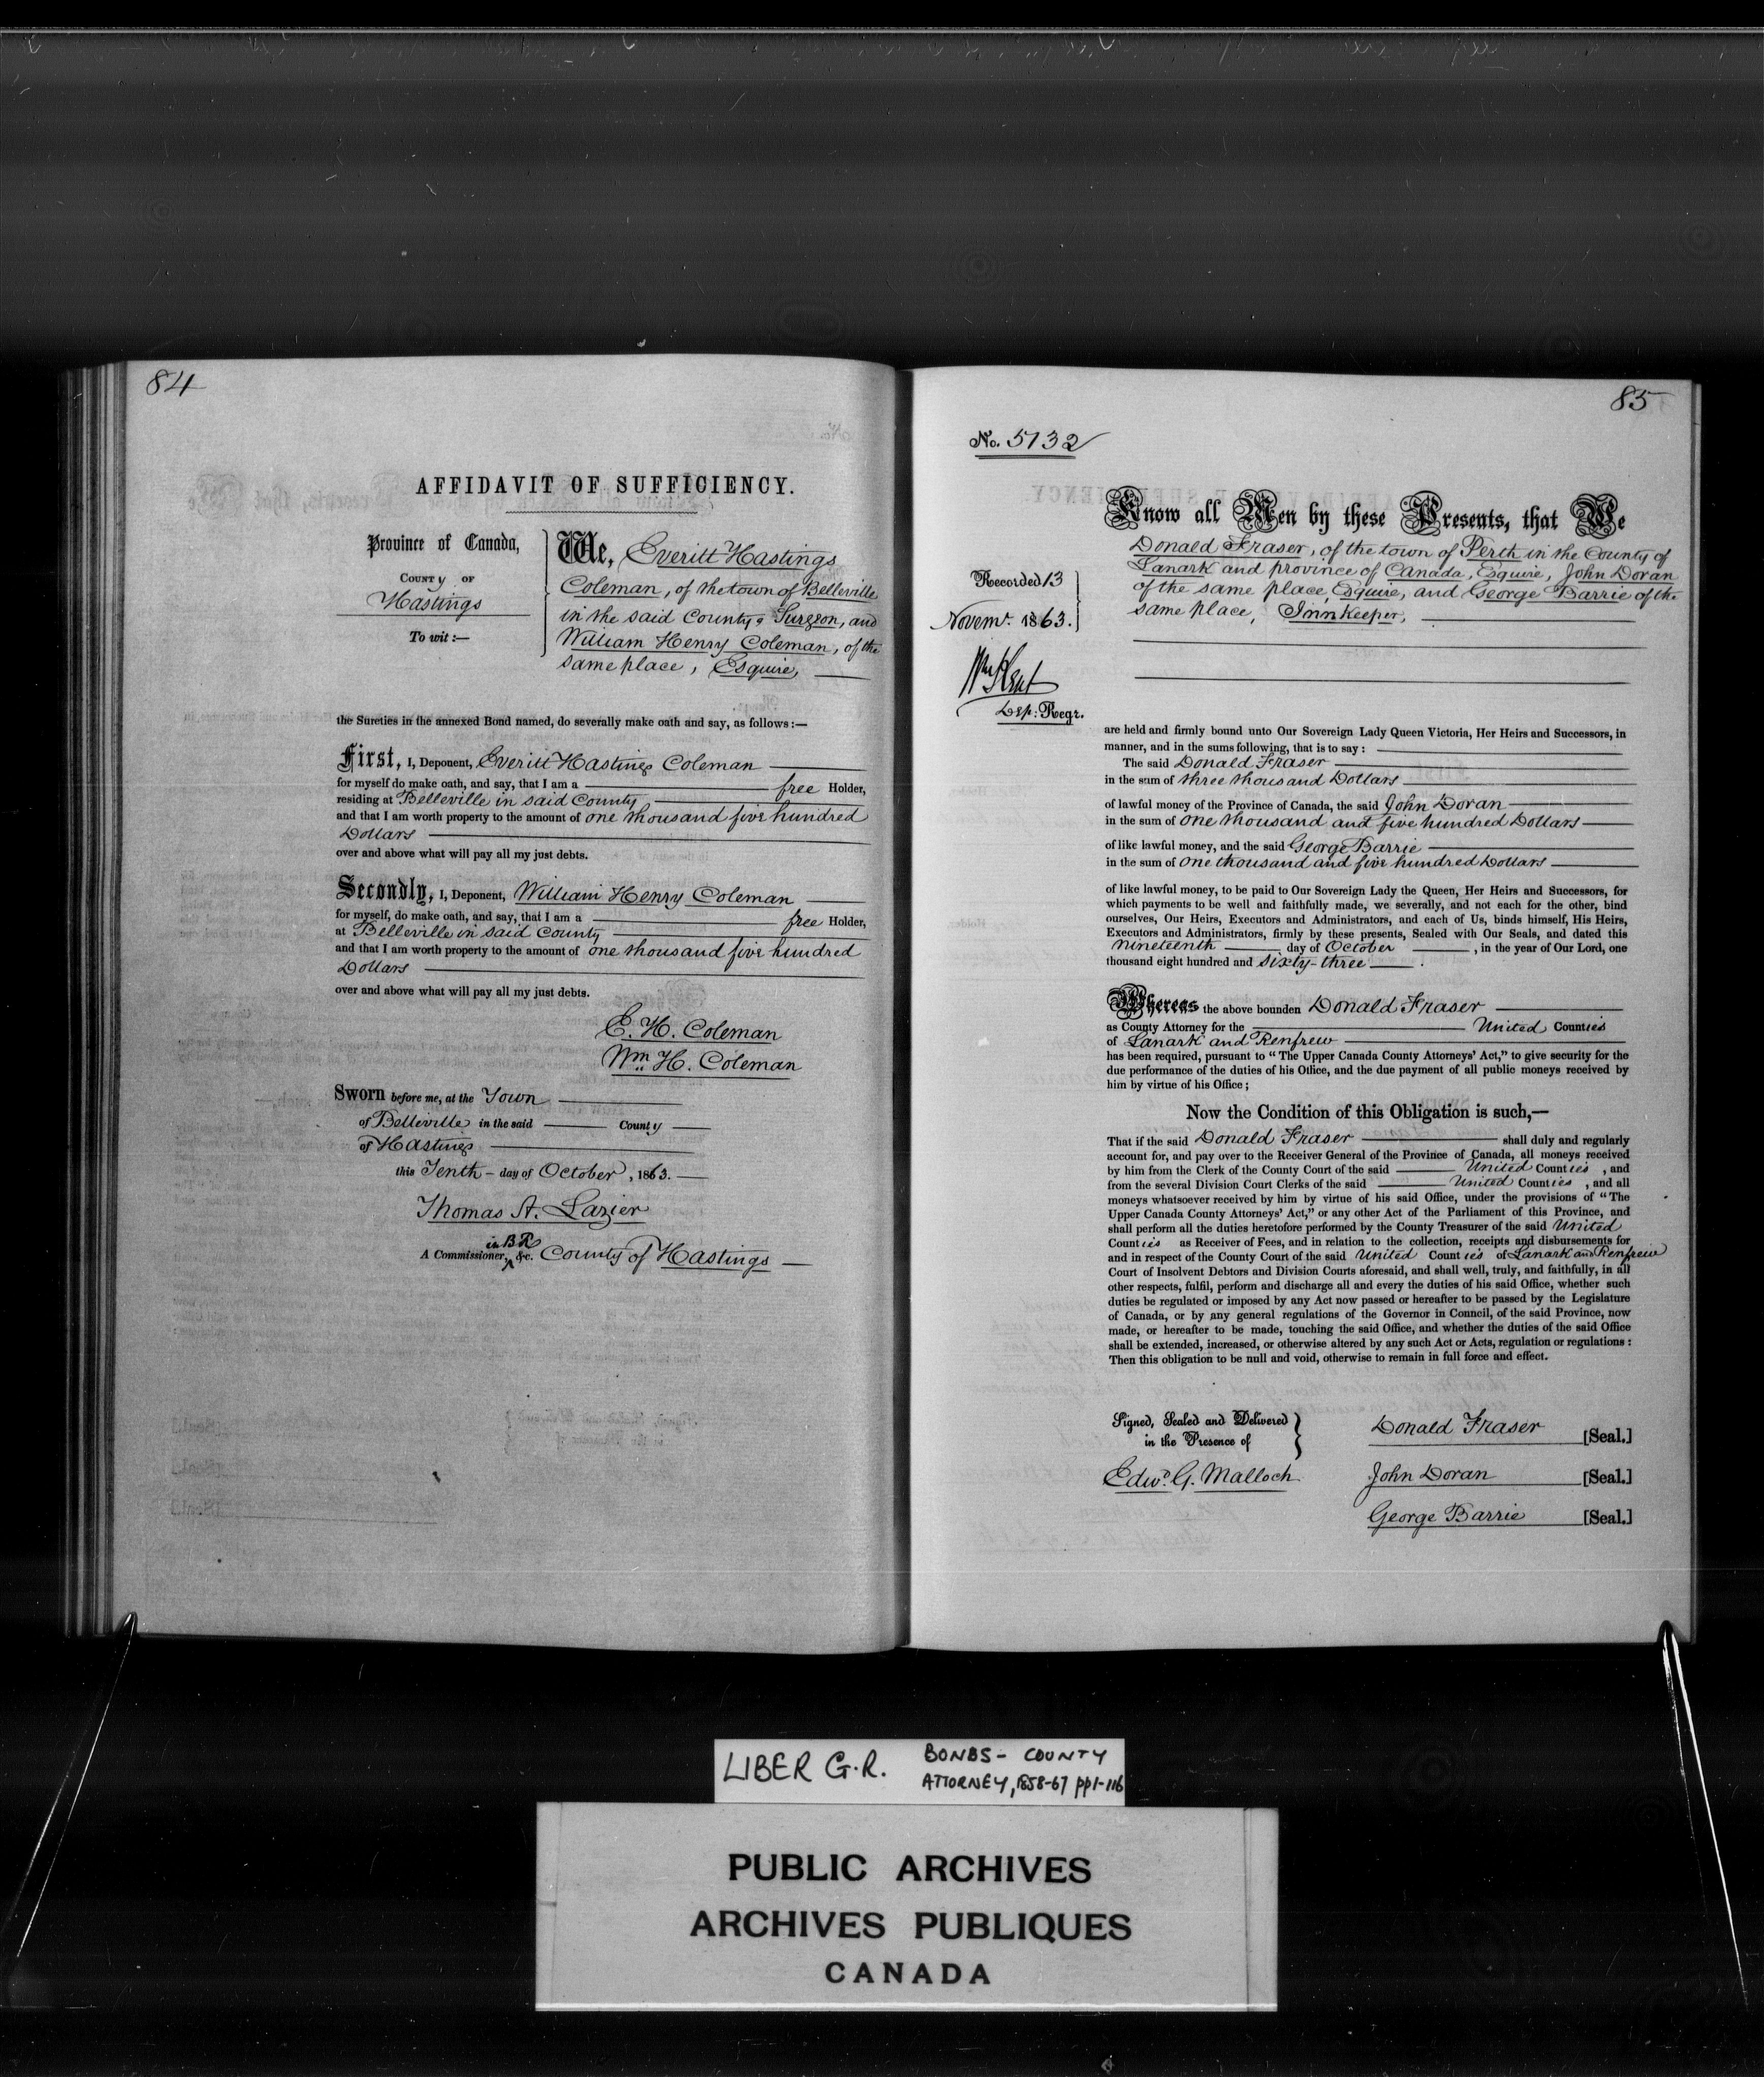 84
AFFIDAVIT OF SUFFICIENCY.
Province of Canada,
COUNTY OF
Hastings
To wit :—
We, Everitt Hastings
Coleman, of the town of Belleville
in the said County, Surgeon, and
William Henry Coleman, of the
same place, Esquire,
the Sureties in the annexed Bond named, do severally make oath and say, as follows :—
First, I, Deponent, Everitt Hastings Coleman
for myself do make oath, and say, that I am a free Holder,
residing at Belleville in said County
and that I am worth property to the amount of one thousand five hundred
Dollars
over and above what will pay all my just debts.
Secondly, I, Deponent, William Henry Coleman
for myself, do make oath, and say, that I am a free Holder,
at Belleville in said County
and that I am worth property to the amount of one thousand five hundred
Dollars
over and above what will pay all my just debts.
E. H. Coleman
Wm. H. Coleman
Sworn before me, at the Town
of Belleville in the said County
of Hastings
this Tenth – day of October, 1863.
Thomas A. Lazier
in BR
A Commissioner, &c. County of Hastings
85
No. 5132
Recorded 13
Novemr. 1863.
Wm Kent
Dep: Regr.
Know all Men by these Presents, that We
Donald Fraser, of the town of Perth in the County of
Lanark and province of Canada, Esquire, John Doran
of the same place, Esquire, and George Barrie of the
same place, Innkeeper,
are held and firmly bound unto Our Sovereign Lady Queen Victoria, Her Heirs and Successors, in
manner, and in the sums following, that is to say :
The said Donald Fraser
in the sum of three thousand Dollars
of lawful money of the Province of Canada, the said John Doran
in the sum of one thousand and five hundred Dollars
of like lawful money, and the said George Barrie
in the sum of one thousand and five hundred Dollars
of like lawful money, to be paid to Our Sovereign Lady the Queen, Her Heirs and Successors, for
which payments to be well and faithfully made, we severally, and not each for the other, bind
ourselves, Our Heirs, Executors and Administrators, and each of Us, binds himself, His Heirs,
Executors and Administrators, firmly by these presents, Sealed with Our Seals, and dated this
nineteenth day of October , in the year of Our Lord, one
thousand eight hundred and sixty-three .
Whereas the above bounden Donald Fraser
as County Attorney for the United Counties
of Lanark and Renfrew
has been required, pursuant to “ The Upper Canada County Attorneys’ Act,” to give security for the
due performance of the duties of his Office, and the due payment of all public moneys received by
him by virtue of his Office ;
Now the Condition of this Obligation is such,—
That if the said Donald Fraser shall duly and regularly
account for, and pay over to the Receiver General of the Province of Canada, all moneys received
by him from the Clerk of the County Court of the said United Counties , and
from the several Division Court Clerks of the said United Counties , and all
moneys whatsoever received by him by virtue of his said Office, under the provisions of “ The
Upper Canada County Attorneys’ Act,” or any other Act of the Parliament of this Province, and
shall perform all the duties heretofore performed by the County Treasurer of the said United
Counties as Receiver of Fees, and in relation to the collection, receipts and disbursements for
and in respect of the County Court of the said United Counties of Lanark and Renfrew
Court of Insolvent Debtors and Division Courts aforesaid, and shall well, truly, and faithfully, in all
other respects, fulfil, perform and discharge all and every the duties of his said Office, whether such
duties be regulated or imposed by any Act now passed or hereafter to be passed by the Legislature
of Canada, or by any general regulations of the Governor in Council, of the said Province, now
made, or hereafter to be made, touching the said Office, and whether the duties of the said Office
shall be extended, increased, or otherwise altered by any such Act or Acts, regulation or regulations :
Then this obligation to be null and void, otherwise to remain in full force and effect.
Signed, Sealed and Delivered
in the Presence of
Edwd. G. Malloch
Donald Fraser [Seal.]
John Doran [Seal.]
George Barrie [Seal.]
LIBER G.R.
BONDS - COUNTY
ATTORNEY, 1858-67 pp1-116
PUBLIC ARCHIVES
ARCHIVES PUBLIQUES
CANADA